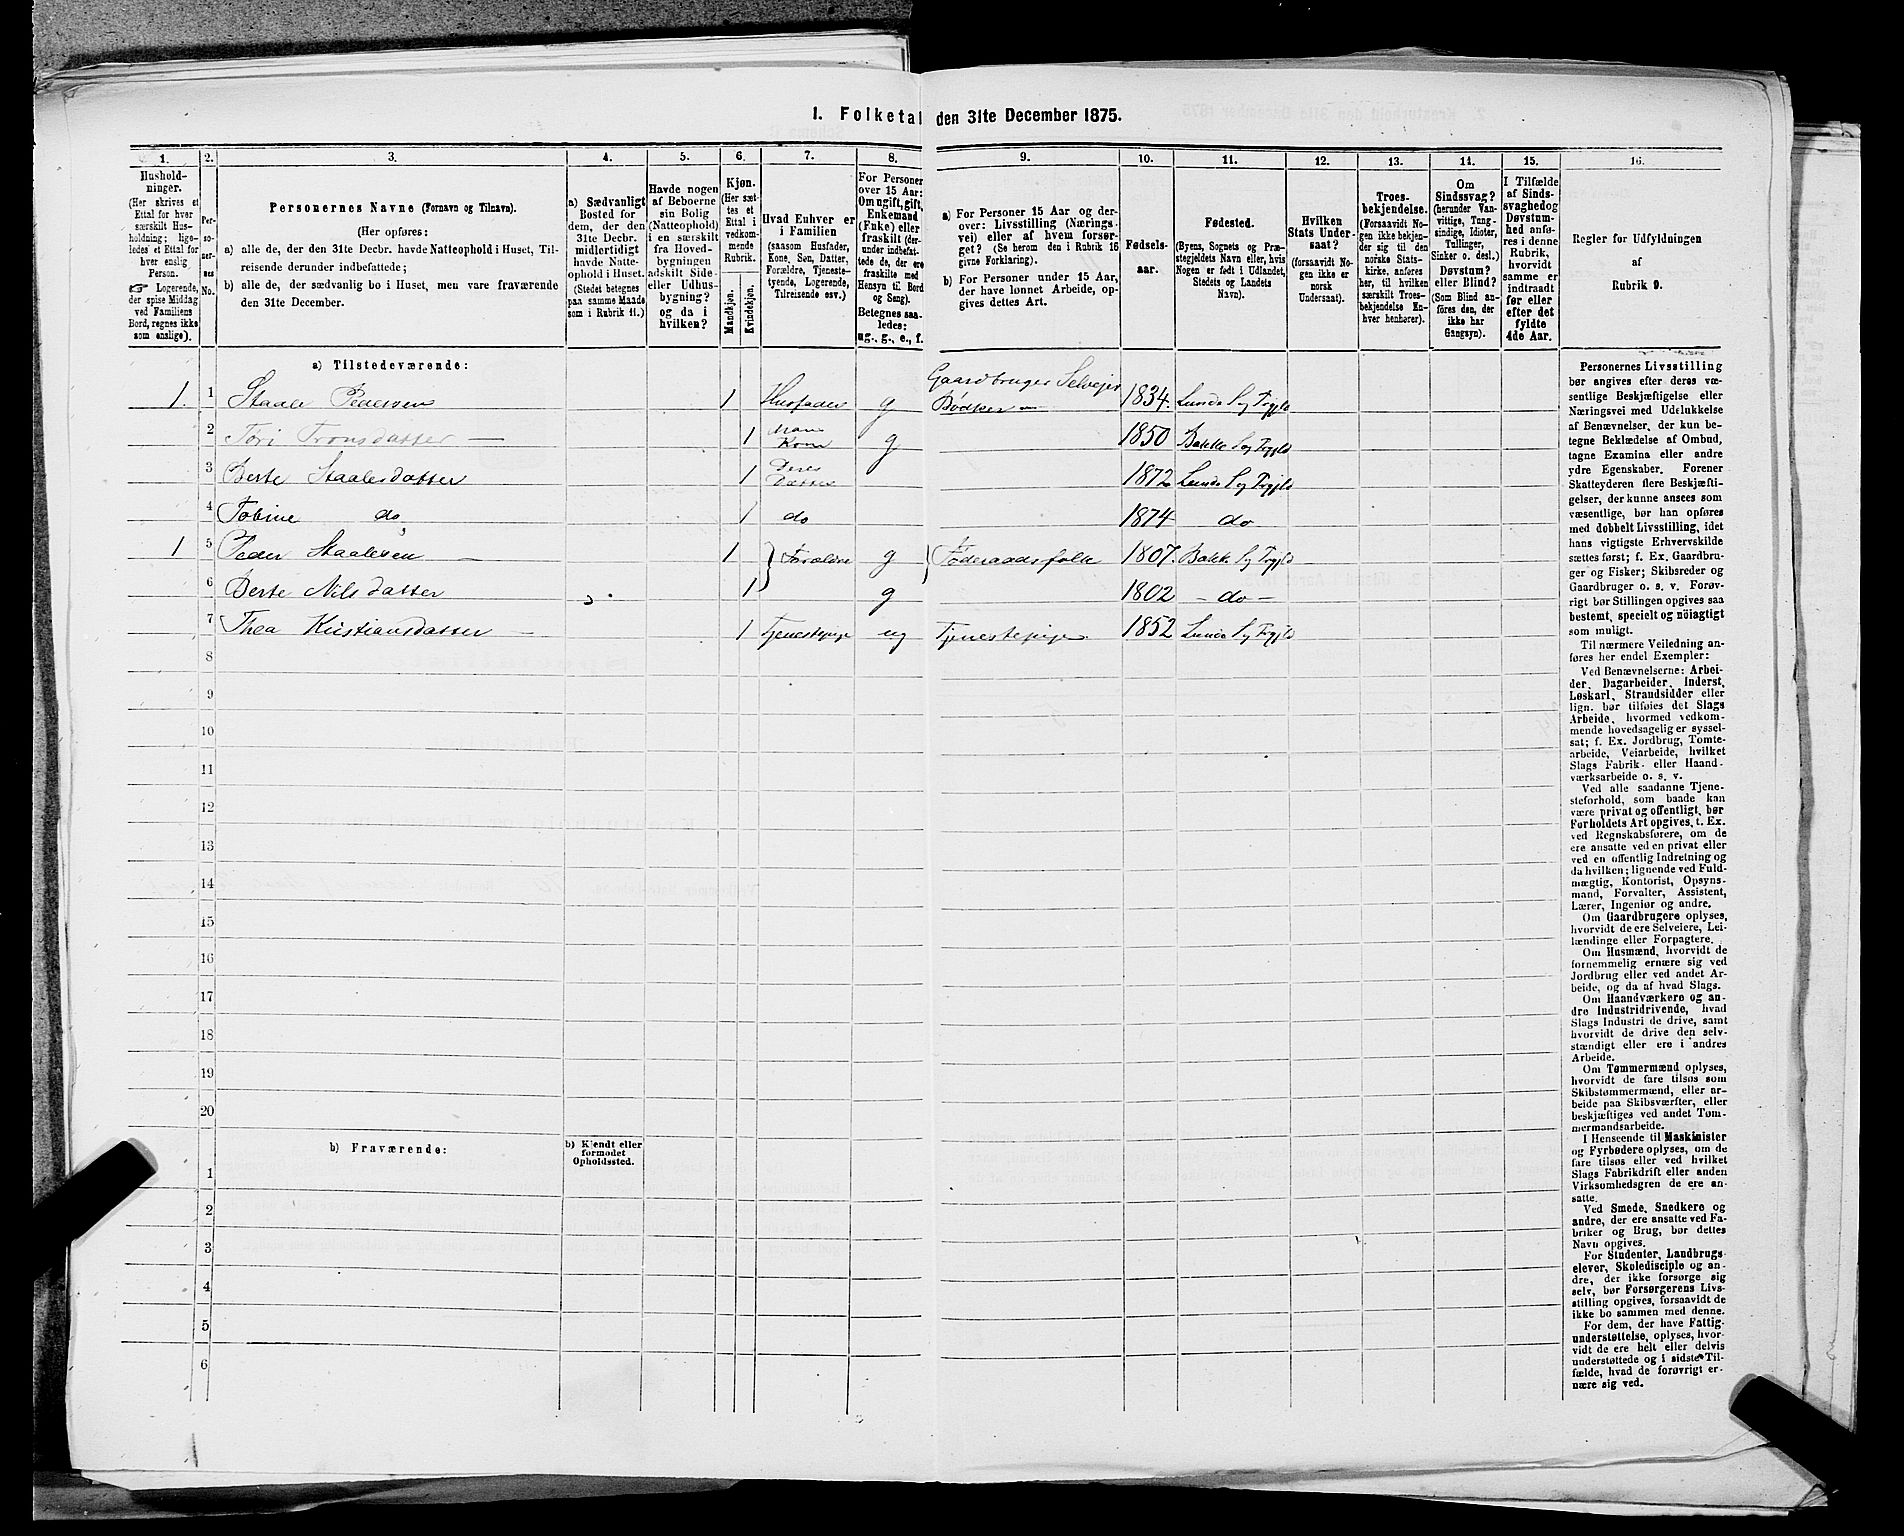 1. Folketal den 31te December 1875.
1. 2. 3. 4. 5. 6. 7. 8. 9. 10. 11. 12. 13. 14. 15. 16.
Hushold-
ninger.
(Her skrives et
Ettal for hver
særskilt Hus-
holdning; lige-
ledes et Ettal for
hver enslig
Person.
☞ Logerende,
der spise Middag
ved Familiens
Bord, regnes ikke
som enslige).
Per-
so-
ner-
nes
No.
Personernes Navne (Fornavn og Tilnavn).
(Her opføres:
a) alle de, der den 31te Decbr. havde Natteophold i Huset, Til-
reisende derunder indbefattede;
b) alle de, der sædvanlig bo i Huset, men vare fraværende
den 31te December.
a) Sædvanligt
Bosted for
dem, der den
31te Decbr.
midlertidigt
havde Natte-
ophold i Huset.
(Stedet betegnes
paa samme Maade
som i Rubrik 11.)
Havde nogen
af Beboerne
sin Bolig
(Natteophold)
i en særskilt
fra Hoved-
bygningen
adskilt Side-
eller Udhus-
bygning?
og da i
hvilken?
Kjøn.
(Her sæt-
tes et
Ettal i
vedkom-
mende
Rubrik.
Mandkjøn.
Kvindekjøn.
Hvad Enhver er
i Familien
(saasom Husfader,
Kone, Søn, Datter,
Forældre, Tjeneste-
tyende, Logerende,
Tilreisende osv.)
For Personer
over 15 Aar:
Om ugift, gift,
Enkemand
(Enke) eller
fraskilt (der-
under indbefat-
tede de, der ere
fraskilte med
Hensyn til Bord
og Seng).
Betegnes saa-
ledes:
ug., g., e., f.
a) For Personer 15 Aar og der-
over: Livsstilling (Nærings-
vei) eller af hvem forsør-
get? (Se herom den i Rubrik 16
givne Forklaring).
b) For Personer under 15 Aar,
der have lønnet Arbeide, op-
gives dettes Art.
Fødsels-
aar.
Fødested.
(Byens, Sognets og Præ-
stegjeldets Navn eller, hvis
Nogen er født i Udlandet,
Stedets og Landets
Navn).
Hvilken
Stats Under-
saat?
(forsaavidt No-
gen ikke er
norsk
Undersaat).
Troes-
bekjendelse.
(Forsaavidt No-
gen ikke bekjen-
der sig til den
norske Stats-
kirke, anføres
her, til hvilken
særskilt Troes-
bekjendelse En-
hver henhører).
Om
Sindssvag?
(herunder Van-
vittige, Tung-
sindige, Idioter,
Tullinger,
Sinker o. desl.)
Døvstum?
eller Blind?
(Som Blind an-
føres den, der
ikke har
Gangsyn).
I Tilfælde
af Sinds-
svaghed og
Døvstum-
hed anfø-
res i denne
Rubrik,
hvorvidt
samme er
indtraadt
før eller
efter det
fyldte
4de Aar.
Regler for Udfyldningen
af
Rubrik 9.
a) Tilstedeværende:
1 1 Staale Pedersen 1 Husfader g Gaardbruger Selveier
Bødker 1834. Lunde S og Prgjld
2 Tori Tronsdatter 1 Hans
Kone g 1850 Bakke S og Prgjld
3 Berte Staalesdatter 1 Deres
Datter 1872 Lunde S og Prgjld
4 Tobine do 1 do 1874 do
1 5 Peder Staalesen 1 Forældre g Føderaadsfolk 1807. Bakke S og Prgjld
6 Berte Nilsdatter 1 g 1802 - do -
7 Thea Kristiansdatter 1 Tjenestepige ug Tjenestepige 1852 Lunde S og Prgjld
8
9
10
11
12
13
14
15
16
17
18
19
20
b) Fraværende:
b) Kjendt eller
formodet
Opholdssted.
1
2
3
4
5
6
Personernes Livsstilling
bør angives efter deres væ-
sentlige Beskjæftigelse eller
Næringsvei med Udelukkelse
af Benævnelser, der kun be-
tegne Beklædelse af Ombud,
tagne Examina eller andre
ydre Egenskaber. Forener
Skatteyderen flere Beskjæfti-
gelser, der kunne ansees som
væsentlige, bør han opføres
med dobbelt Livsstilling, idet
hans vigtigste Erhvervskilde
sættes først; f. Ex. Gaardbru-
ger og Fisker; Skibsreder og
Gaardbruger o. s. v. Forøv-
rigt bør Stillingen opgives saa
bestemt, specielt og nöiagtigt
som muligt.
Til nærmere Veiledning an-
føres her endel Exempler:
Ved Benævnelserne: Arbei-
der, Dagarbeider, Inderst,
Løskarl, Strandsidder eller
lign. bør tilføies det Slags
Arbeide, hvormed vedkom-
mende hovedsagelig er syssel-
sat; f. Ex. Jordbrug, Tomte-
arbeide, Veiarbeide, hvilket
Slags Fabrik- eller Haand-
værksarbeide o. s. v.
Ved alle saadanne Tjene-
steforhold, som baade kan
være privat og offentligt, bør
Forholdets Art opgives, t. Ex.
ved Regnskabsførere, om de
ere ansatte ved en privat eller
ved en offentlig Indretning og
da hvilken; lignende ved Fuld-
mægtig, Kontorist, Opsyns-
mand, Forvalter, Assistent,
Lærer, Ingeniør og andre.
Om Gaardbrugere oplyses,
hvorvidt de ere Selveiere, Lei-
lændinge eller Forpagtere.
Om Husmænd, hvorvidt de
fornemmelig ernære sig ved
Jordbrug eller ved andet Ar-
beide, og da af hvad Slags.
Om Haandværkere og an-
dre Industridrivende, hvad
Slags Industri de drive, samt
hvorvidt de drive den selv-
stændigt eller ere i andres
Arbeide.
Om Tømmermænd oplyses,
hvorvidt de fare tilsøs som
Skibstømmermænd, eller ar-
beide paa Skibsværfter, eller
beskjæftiges ved andet Tøm-
mermandsarbeide.
I Henseende til Maskinister
og Fyrbødere oplyses, om de
fare tilsøs eller ved hvilket
Slags Fabrikdrift eller anden
Virksomhedsgren de ere an-
satte.
Ved Smede, Snedkere og
andre, der ere ansatte ved Fa-
briker og Brug, bør dettes
Navn opgives.
For Studenter, Landbrugs-
elever, Skoledisciple og an-
dre, der ikke forsørge sig
selv, bør Forsørgerens Livs-
stilling opgives, forsaavidt de
ikke bo sammen med denne.
For dem, der have Fattig-
understøttelse, oplyses, hvor-
vidt de ere helt eller delvis
understøttede og i sidste Til-
fælde, hvad de forøvrigt er-
nære sig ved.